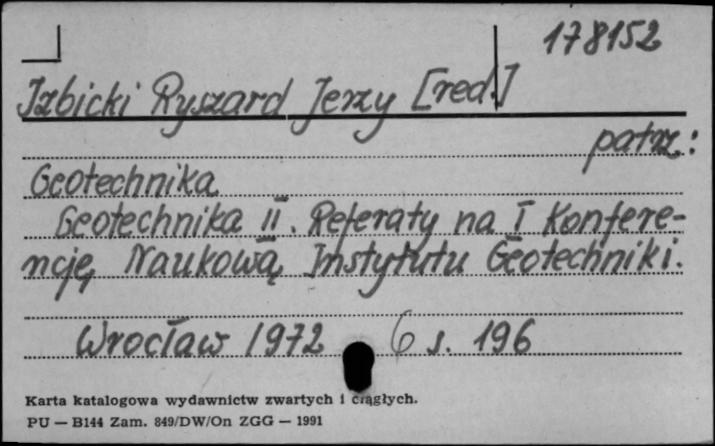 178152
Izbicki Ryszard Jerzy [red.]
patrz:
Geotechnika
Geotechnika II. Referaty na I Konfere-
ncję Naukową Instytutu Geotechniki.
Wrocław 1972 6 s. 196
Karta katalogowa wydawnictw zwartych i ciągłych.
PU — B144 Zam. 849/DW/On ZGG — 1991